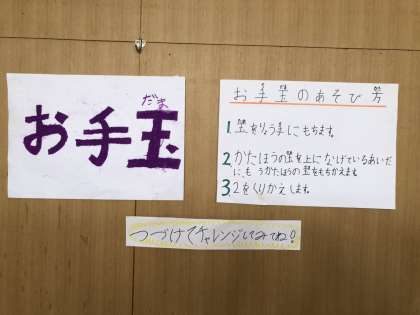 だま
お手玉
お手玉のあそび方
1. 玉をりょう手にもちます。
2. かたほうの玉を上になげているあいだ
にもうかたほうの玉をもちかえます
3. 2をくりかえします。
つづけてチャレンジしてみてね!